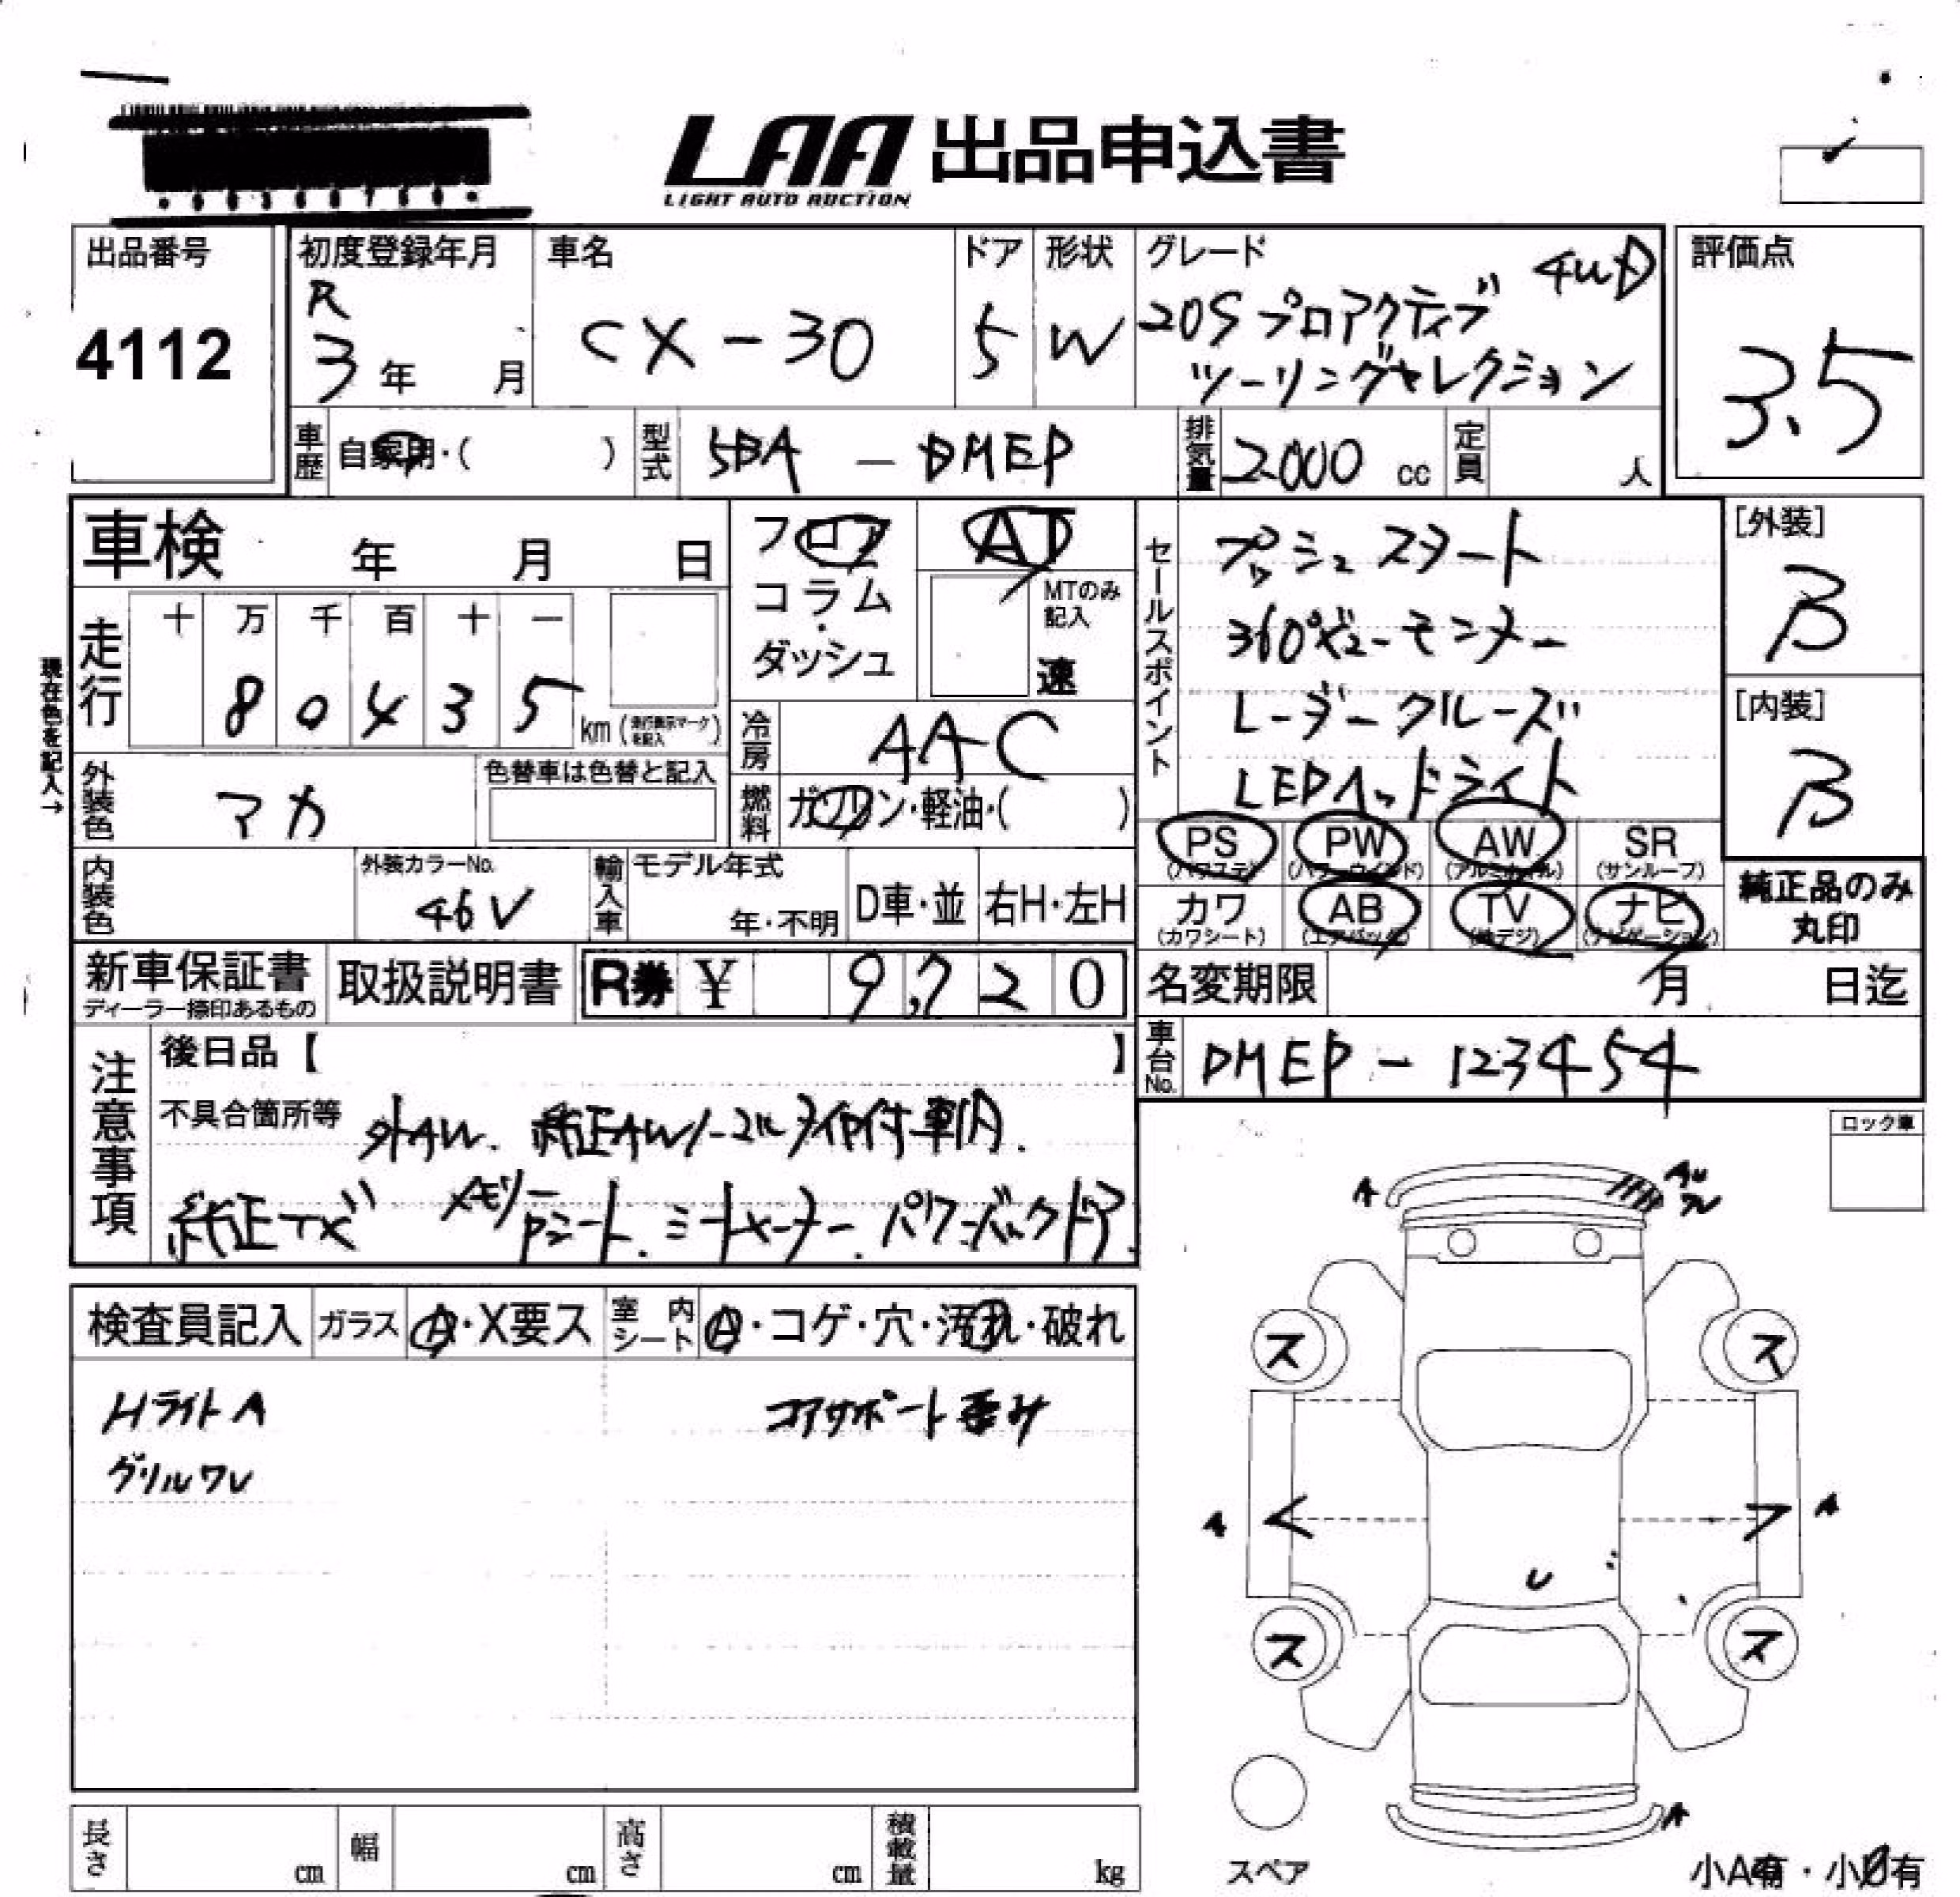 LAA 出品申込書
LIGHT AUTO AUCTION
出品番号
4112
初度登録年月
R
3年 月
車名
CX-30
ドア
5
形状
W
グレード
4WD
20S プロアクティブ
ツーリングセレクション
評価点
3.5
車歴
自家用・( )
型式
5BA - DMEP
排気量
2000 cc
定員
人
車検 年 月 日
走行
十 万 千 百 十 一
8 0 4 3 5
km (走行表示マークを記入)
現在色を記入→
フロア
コラム
・
ダッシュ
AT
MTのみ
記入
速
冷房
AAC
燃料
ガソリン・軽油・( )
外装色
マカ
色替車は色替と記入
内装色
外装カラーNo.
46V
輸入車
モデル年式
年・不明
D車・並
右H・左H
セールスポイント
プッシュスタート
360°ビューモニター
レーダークルーズ
LEDヘッドライト
[外装]
B
[内装]
B
PS
(パワステ)
PW
(パワーウインド)
AW
(アルミホイル)
SR
(サンルーフ)
カワ
(カワシート)
AB
(エアバック)
TV
(地デジ)
ナビ
(ナビゲーション)
純正品のみ
丸印
新車保証書
ディーラー捺印あるもの
取扱説明書
R券 ¥ 9,720
名変期限 月 日迄
車台No.
DMEP - 123454
注意事項
後日品【 】
不具合箇所等
外AW. 純正AW ノーマルタイヤ付 車内.
純正TVナビ メモリー Pシート. シートヒーター. パワーバックドア.
ロック車
検査員記入
ガラス
A・X要ス
室内
シート
A・コゲ・穴・汚れ・破れ
Hライト A
グリル ワレ
コアサポート歪み
A
AU
ワレ
ス
ス
A
A
U
ス
ス
A
スペア
小A有・小U有
長さ
cm
幅
cm
高さ
cm
積載量
kg